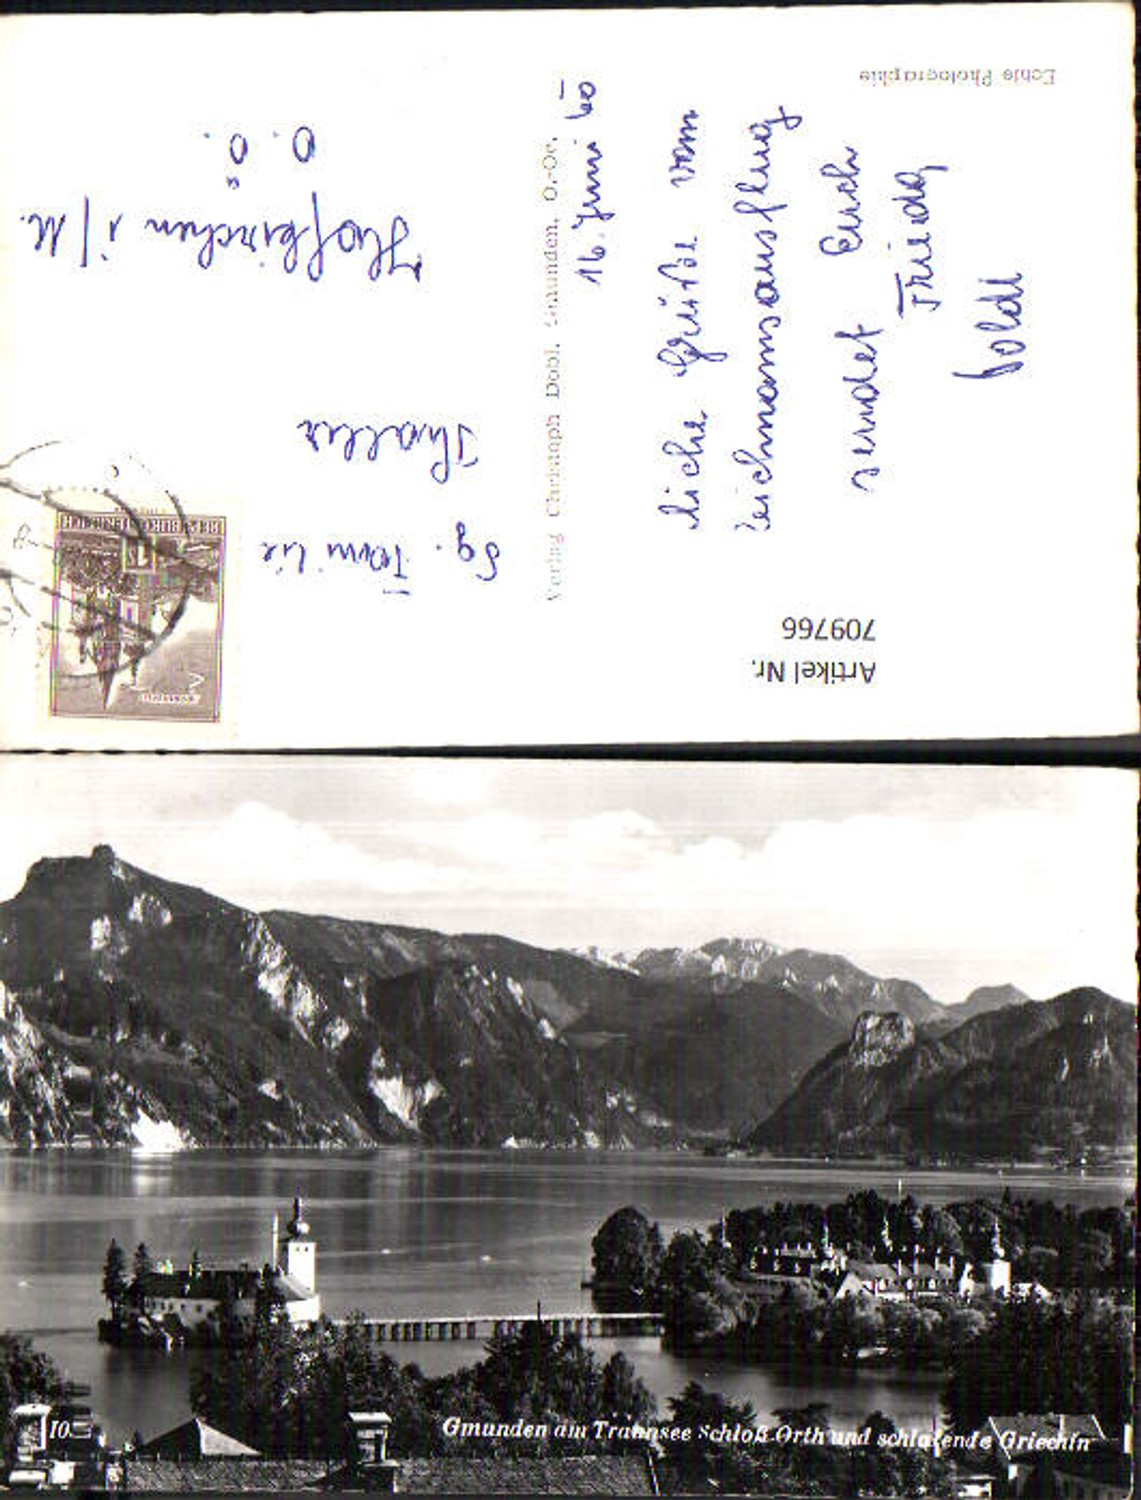 Echte Photographie
16. Juni 60
liche Grüße vom
Leichnamsausflug
sendet Euch
Friedg
Poldi
Verlag Christoph Dobl, Gmunden, O.-Oe.
Fam ilie
Thaller
Hofkirchen i/M.
O. Ö.
REPUBLIK ÖSTERREICH
Artikel Nr.
709766
10
Gmunden am Traunsee Schloß Orth und schlafende Griechin